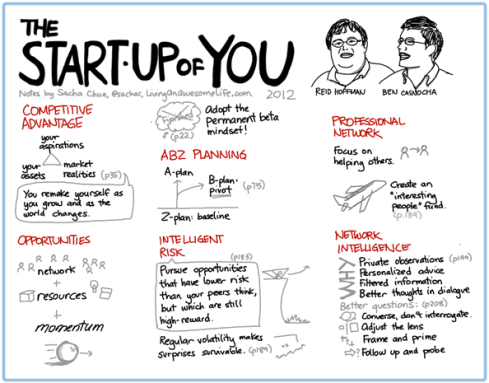 THE
START-UP OF YOU
Notes by Sacha Chua, @sachac, LivingAnAwesomeLife.com 2012
REID HOFFMAN
BEN CASNOCHA
COMPETITIVE
ADVANTAGE
your
aspirations
your
assets
market
realities
(p35)
You remake yourself as
you grow and as the
world changes.
OPPORTUNITIES
network
+
resources
+
momentum
Finished
(p22)
Adopt the
permanent beta
mindset!
ABZ PLANNING
A-plan
B-plan:
pivot
(p75)
Z-plan: baseline
INTELLIGENT
RISK
(p183)
Pursue opportunities
that have lower risk
than your peers think,
but which are still
high-reward.
Regular volatility makes
surprises survivable. (p189)
PROFESSIONAL
NETWORK
Focus on
helping others.
Create an
"interesting
people" fund.
(p.139)
NETWORK
INTELLIGENCE
WHY
Private observations (p199)
Personalized advice
Filtered information
Better thoughts in dialogue
Better questions: (p208)
Converse, don't interrogate.
Adjust the lens
Frame and prime
Follow up and probe